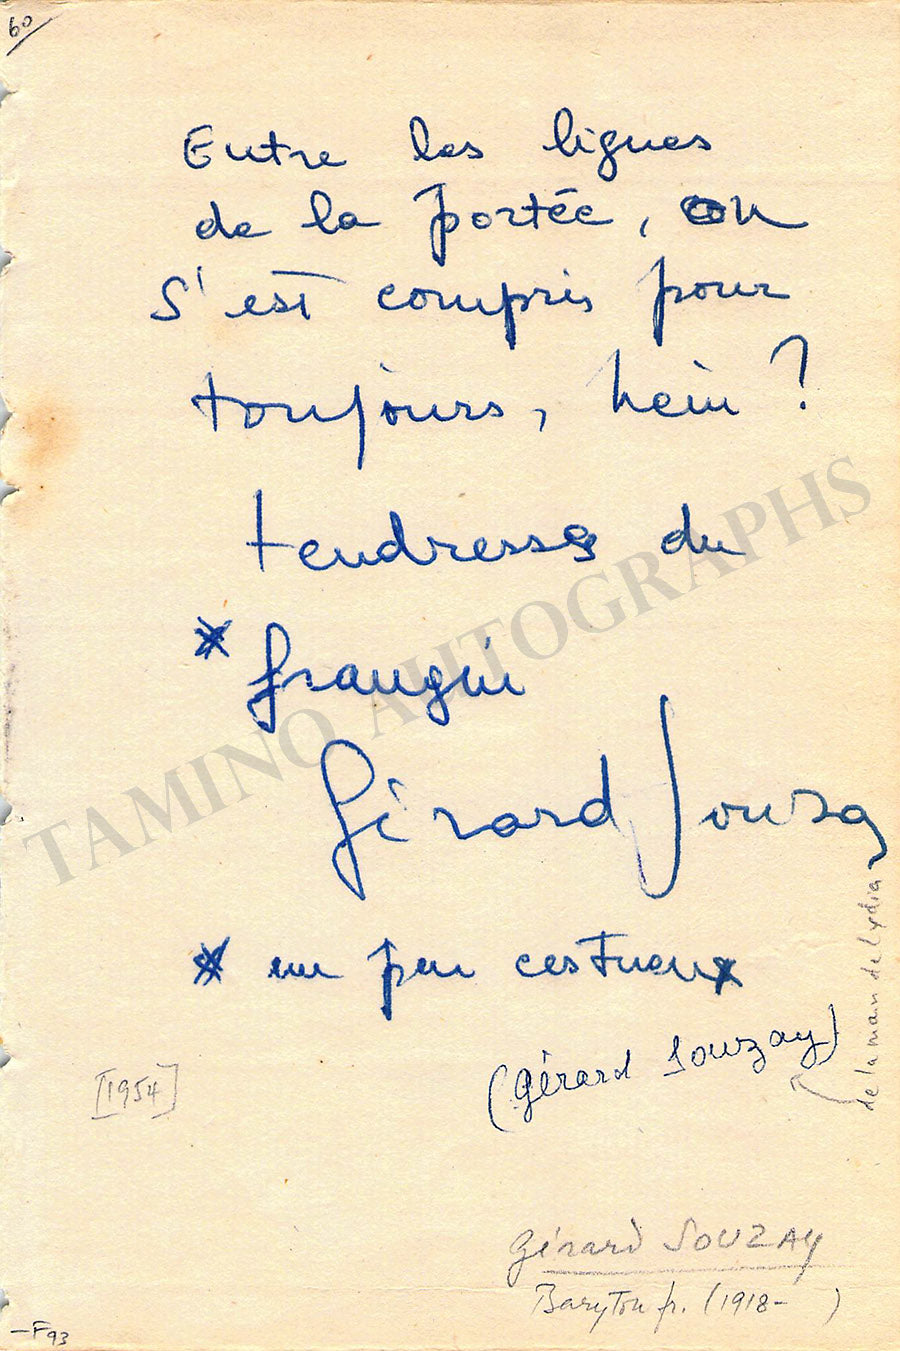 60
Entre les lignes
de la portée, on
s'est compris pour
toujours, hein ?
tendresses du
* frangin
Gérard Souzay
* un peu
(Gérard Souzay)
de la main de Lydia
[1954]
Gérard SOUZAY
Baryton fr. (1918- )
-F93
TAMINO AUTOGRAPHS